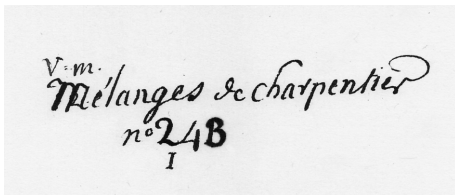 V. m.
Mélanges de charpentier
nº 24B
I